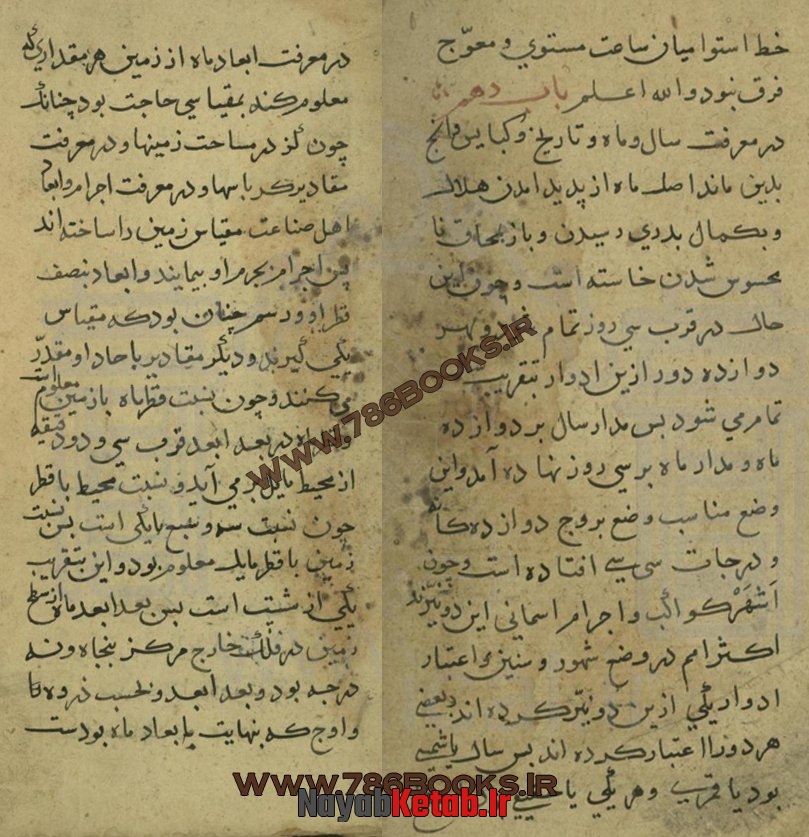 خط استوا میان ساعت مستوي و معوّج
فرق نبود والله اعلم باب دهم
در معرفت سال و ماه و تاریخ و کبایس
بدین ماند اصل ماه از پدید امدن هلال
و بکمال بدري رسیدن و باز بمحاق نا
محسوس شدن خاسته است و چون این
حال در قرب سي روز تمام
دوازده دور ازین ادوار بتقریب
تمام مي شود بس مدار سال بر دوازده
ماه و مدار ماه بر سي روز نهاده آمد و این
وضع مناسب وضع بروج دوازده کانه
و درجات سي سي افتاده است و چون
اَشْهَرْ کواکب و اجرام اسماني این دو نیّرند
اکثر امم در وضع شهور و سنین اعتبار
ادوار یکي ازین دو نیّر کرده اند و بعضي
هر دو را اعتبار کرده اند بس سال یا شمسي
بود یا قمري و هر یکي یا
در معرفت ابعاد ماه از زمین هر مقداري که
معلوم کنند بمقیاسي حاجت بود چنانک
چون کز در مساحت زمینها و در معرفت
مقادیر کرباسها و در معرفت اجرام و ابعاد
اهل صناعت مقیاس زمین را ساخته اند
پس اجرام بجرم او بیمایند و ابعاد بنصف
قطر او و رسم چنان بود که مقیاس
یکي کیرند و دیکر مقادیر باحاد او مقدّر
مي کنند و چون نسبت قطر ماه با زمین معلوم است
ماه در بعد ابعد قرب سي و دو دقیقه
از محیط مایل بر مي آید و نسبت محیط با قطر
چون نسبت سه و سبع با یکي است بس نسبت
زمین با قطر مایل معلوم بود و این بتقریب
یکي از شصت است بس بعد ابعد ماه از سطح
زمین در فلک خارج مرکز بنجاه و نه
درجه بود و بعد ابعد و بحسب ذروه
و اوج که بنهایت ابعاد ماه بودست
WWW.786BOOKS.IR
WWW.786BOOKS.IR
NayabKetab.Ir